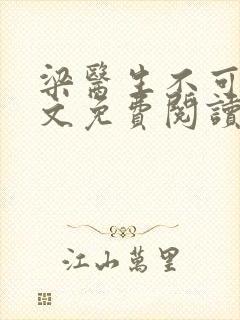 梁醫生不可
文免費閱讀
江山萬里